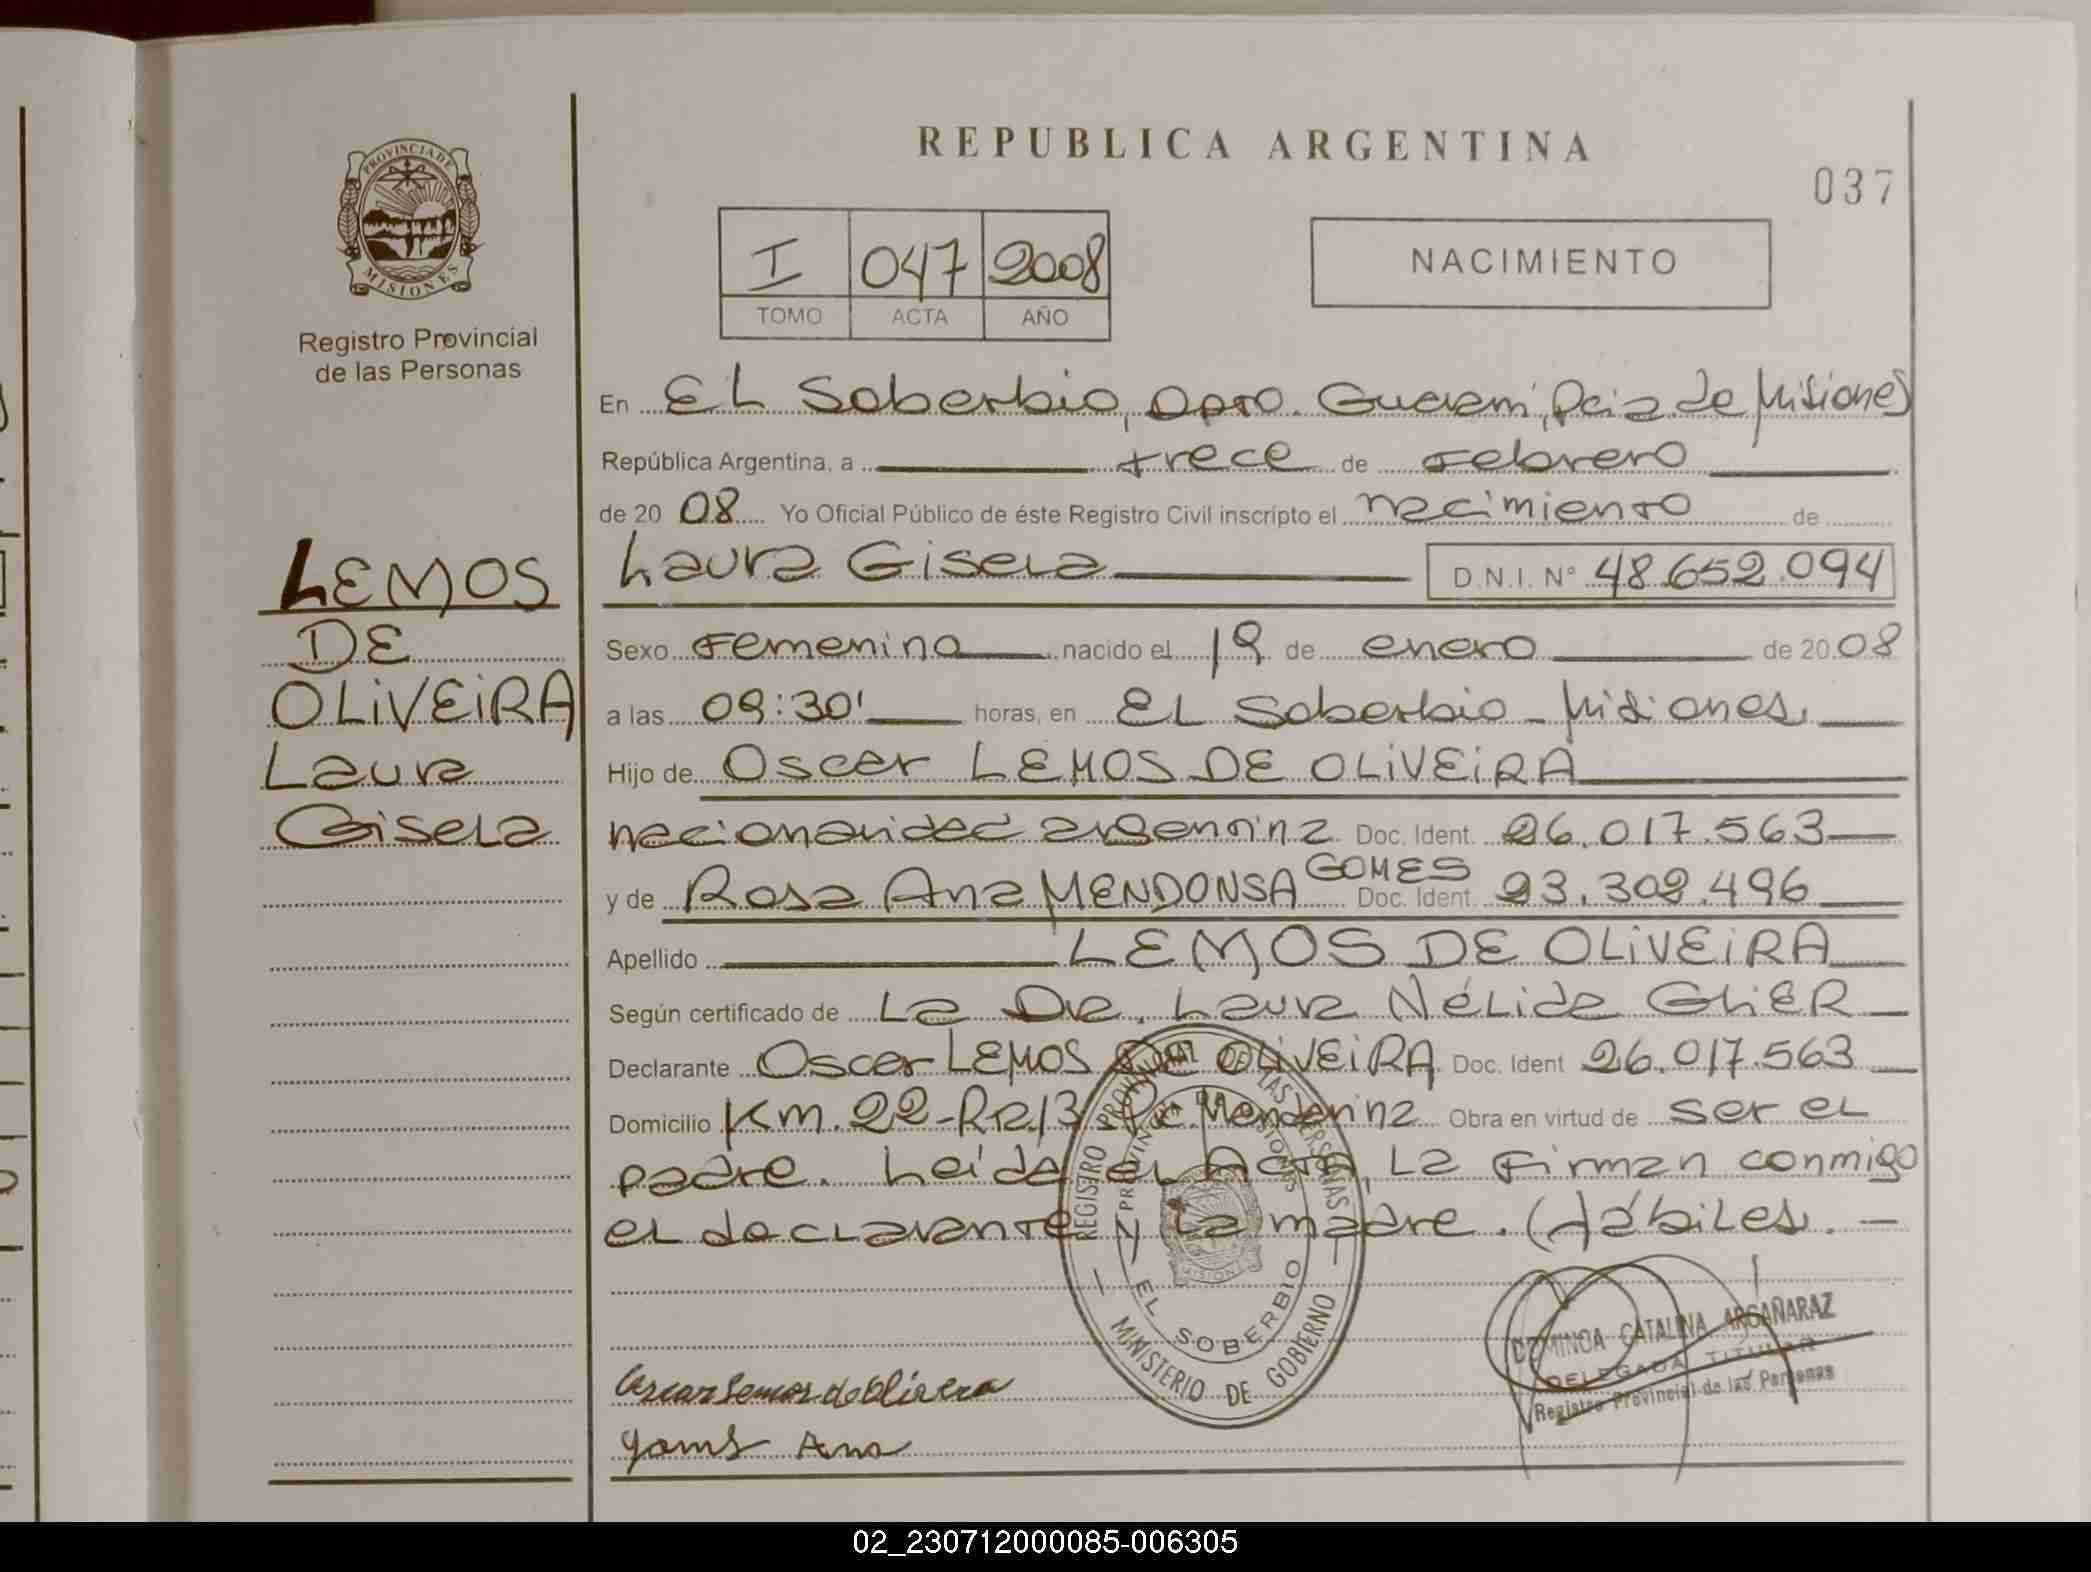 REPUBLICA ARGENTINA
037
PROVINCIA DE
MISIONES
Registro Provincial
de las Personas
I 047 2008
TOMO ACTA AÑO
NACIMIENTO
En EL Soberbio, Dpto. Guarani, Pcia. de Misiones
República Argentina, a trece de Febrero
de 2008 Yo Oficial Público de éste Registro Civil inscripto el nacimiento de
Laura Gisela D.N.I. Nº 48.652.094
LEMOS
DE
OLIVEIRA
Laura
Gisela
Sexo Femenino nacido el 19 de enero de 2008
a las 09:30' horas, en EL Soberbio - Misiones.
Hijo de Oscar LEMOS DE OLIVEIRA
nacionalidad argentina Doc. Ident. 26.017.563
y de Rosa Ana MENDONSA GOMES Doc. Ident. 93.302.496
Apellido LEMOS DE OLIVEIRA
Según certificado de La Dra. Laura Nélida GLIER
Declarante Oscar LEMOS DE OLIVEIRA Doc. Ident 26.017.563
Domicilio Km. 22-R.P.13 Pje. Mandarina Obra en virtud de ser el
padre. Leída el Acta, La Firman conmigo
el declarante y La madre. Hábiles. -
REGISTRO PROVINCIAL DE LAS PERSONAS
PROVINCIA DE MISIONES
MISIONES
EL SOBERBIO
MINISTERIO DE GOBIERNO
DOMINGA CATALINA ARGAÑARAZ
DELEGADA TITULAR
Registro Provincial de las Personas
Oscar Lemos de Olivera
Ana
02_230712000085-006305